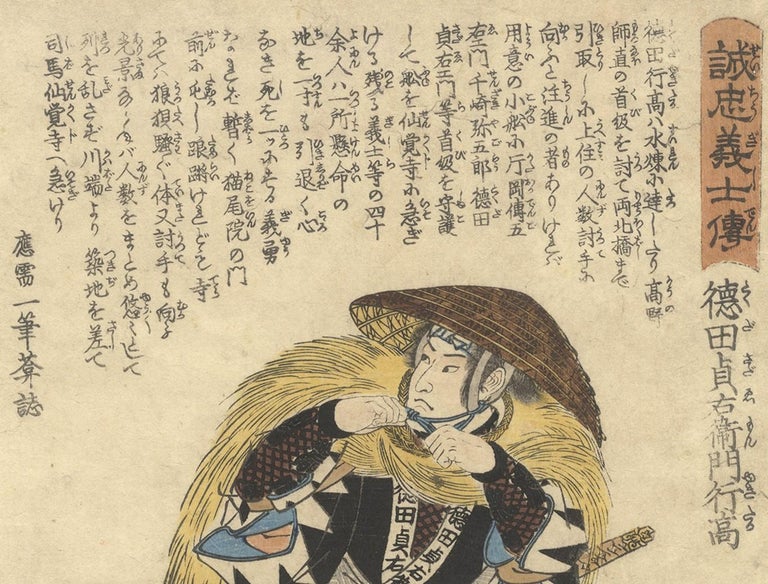 誠忠義士傳
徳田貞右衛門行高
徳田行高ハ水煉に達したり高野
師直の首級を討て両北橋まで
引取しに上住の人数討手に
向ふと注進の者ありければ
用意の小舩に片岡傳五
右エ門千崎弥五郎徳田
貞右エ門等首級を守護
して舩を仙覚寺に急ぎ
ける残る義士等の四十
余人ハ一所懸命の
地を一寸も引退く心
なき死を一ツにする義勇
なれば暫く猫尾院の門
前に屯し踉蹡けれども寺
にてハ狼狽騒ぐ体又討手も向ふ
光景なければ人数をまとめ悠々として
列を乱さず川端より築地を差て
司馬仙覚寺へ急けり
應需一筆葊誌
徳田貞右衛
徳田貞右